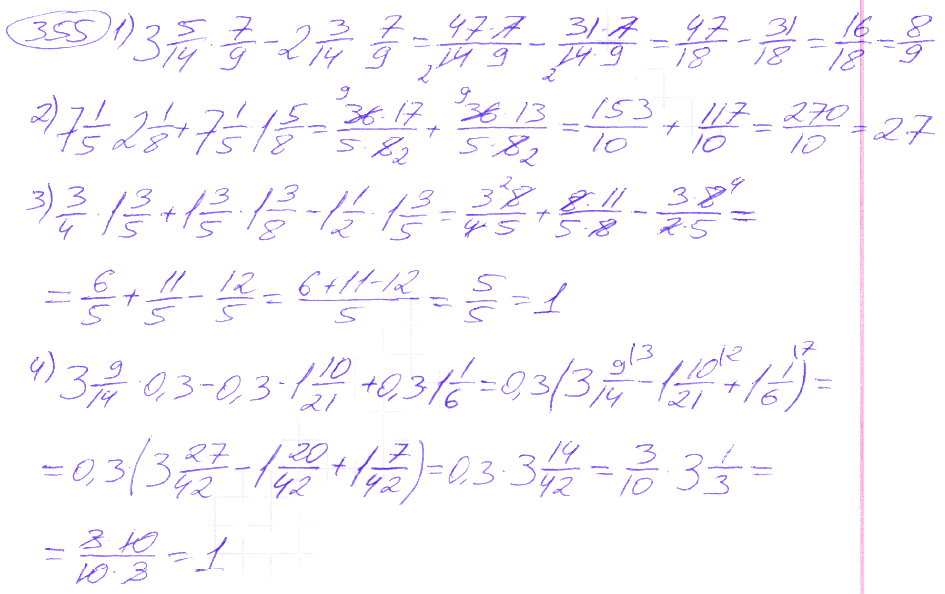 355 1) 3 5/14 · 7/9 - 2 3/14 · 7/9 = 47·7/14·9 - 31·7/14·9 = 47/18 - 31/18 = 16/18 = 8/9
2) 7 1/5 · 2 1/8 + 7 1/5 · 1 5/8 = 36·17/5·8 + 36·13/5·8 = 153/10 + 117/10 = 270/10 = 27
3) 3/4 · 1 3/5 + 1 3/5 · 1 3/8 - 1 1/2 · 1 3/5 = 3·8/4·5 + 8·11/5·8 - 3·8/2·5 =
= 6/5 + 11/5 - 12/5 = 6+11-12/5 = 5/5 = 1
4) 3 9/14 · 0,3 - 0,3 · 1 10/21 + 0,3 · 1 1/6 = 0,3 (3 9/14 - 1 10/21 + 1 1/6) =
= 0,3 (3 27/42 - 1 20/42 + 1 7/42) = 0,3 · 3 14/42 = 3/10 · 3 1/3 =
= 3·10/10·3 = 1